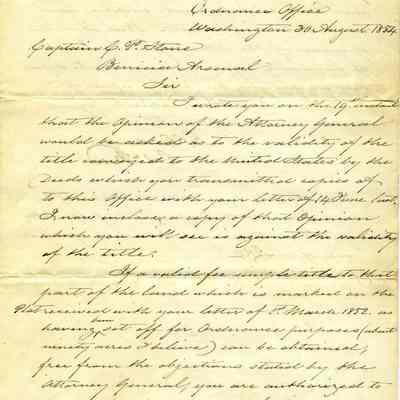 Ordnance Office
Washington 30 August 1854
Captain C. P. Stone
Benicia Arsenal
Sir
I wrote you on the 19th instant
that the opinion of the Attorney General
would be asked as to the validity of the
title conveyed to the United States by the
Deeds whereof you transmitted copies of
to this Office with your letter of 14 June last.
I now enclose a copy of that Opinion
which you will see is against the validity
of the title.
If a valid fee simple title to that
part of the land which is marked on the
Plat received with your letter of 1st March 1852 as
having been set off for Ordnance purposes (about
ninety acres I believe) can be obtained,
free from the objections stated by the
Attorney General, you are authorized to